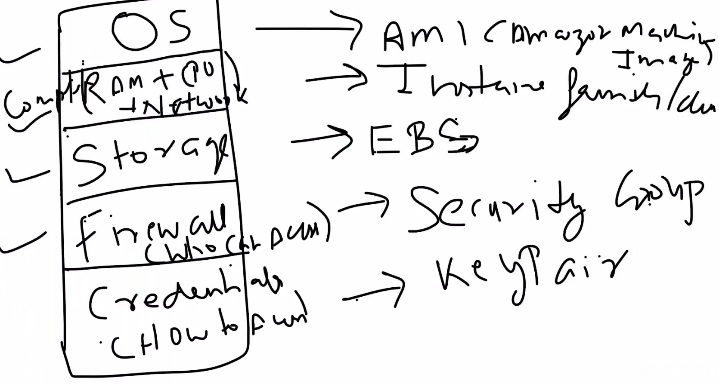 OS → AMI (Amazon Machine
Image)
Compute (RAM + CPU
+ Network) → Instance family/
Storage → EBS
Firewall
(Who can Access) → Security Group
Credentials
(How to Access) → KeyPair